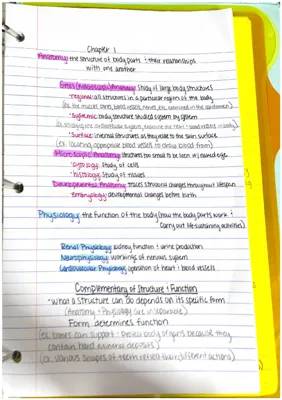 Chapter 1
Anatomy: the structure of body parts + their relationships
with one another
Gross (macroscopic) Anatomy: study of large body structures
· regional: all structures in a particular region of the body
(ex. the muscles, bones, blood vessels, nerves, etc. examined in the abdomen)
· Systemic: body structure studied system by system
(ex. studying the cardiovascular system, examine the heart + blood vessels in body)
· Surface: internal structures as they relate to the skin surface
(ex. locating appropriate blood vessels to draw blood from)
Microscopic Anatomy: structures too small to be seen w/ naked eye
· cytology: study of cells
· histology: study of tissues
Developmental Anatomy: traces structural changes throughout lifespan
· Embryology: developmental changes before birth
Physiology: the function of the body (how the body parts work +
carry out life sustaining activities)
Renal Physiology: kidney function + urine production
Neurophysiology: workings of nervous system
Cardiovascular Physiology: operation of heart + blood vessels
Complementary of Structure + Function
· what a structure can do depends on its specific form
(Anatomy + Physiology are inseparable)
Form determines function
(ex. bones can support + protect body organs because they
contain hard mineral deposits)
(ex. various shapes of teeth reflect their different actions)